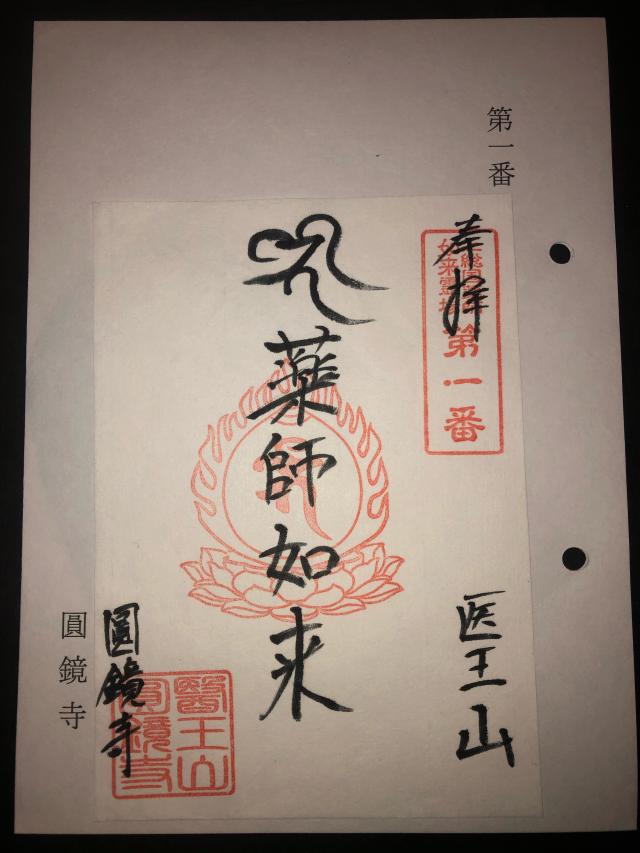 第一番
奉拝
第一番
医王山
薬師如来
圓鏡寺
醫王山
圓鏡寺
圓鏡寺